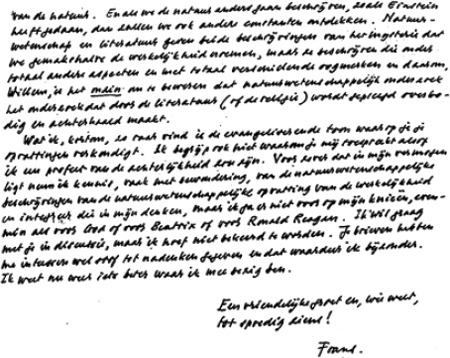 van de natuur. En als we de natuur anders gaan beschrijven, zoals Einstein
heeft gedaan, dan zullen we ook andere constanten ontdekken. Natuur-
wetenschap en literatuur geven beide beschrijvingen van het ingesloten dat
we gemakshalve de werkelijkheid noemen, maar ze beschrijven die onder
totaal andere aspecten en met totaal verschillende oogmerken en daarom,
Willem, is het onzin om te beweren dat natuurwetenschappelijk onderzoek
het onderzoek dat door de literatuur (of de religie) wordt gepleegd overbo-
dig en achterhaald maakt.
Wat ik, kortom, zo raar vind is de evangeliserende toon waarop je je
opvattingen verkondigt. Ik begrijp ook niet waarom je mij toespreekt alsof
ik een profeet van de achterlijkheid zou zijn. Voor zover dat in mijn vermogen
ligt neem ik kennis, vaak met bewondering, van de natuurwetenschappelijke
beschrijvingen van de natuurwetenschappelijke opvatting van de werkelijkheid
en integreer die in mijn denken, maar ik ga er niet voor op mijn knieën, even-
min als voor God of voor Beatrix of voor Ronald Reagan. Ik wil graag
met je in discussie, maar ik hoef niet bekeerd te worden. Je brieven hebben
me intussen wel stof tot nadenken gegeven en dat waardeer ik bijzonder.
Ik weet nu weer iets beter waar ik mee bezig ben.
Een vriendelijke groet en, wie weet,
tot spoedig ziens!
Frans.